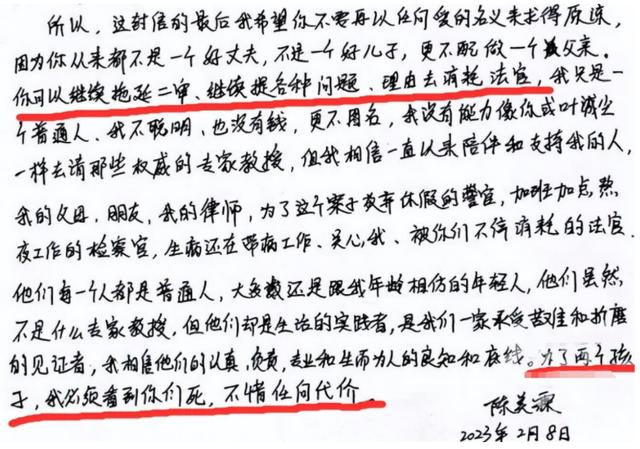 所以，这封信的最后我希望你不要再以任何爱的名义来求得原谅，
因为你从来都不是一个好丈夫，不是一个好儿子，更不配做一个父亲。
你可以继续拖延二审、继续提各种问题、理由去消耗法官，我只是一
个普通人、我不聪明、也没有钱，更不出名，我没有能力像你或叶诚尘
一样去请那些权威的专家教授，但我相信一直以来陪伴和支持我的人，
我的父母、朋友、我的律师，为了这个案子放弃休假的警官，加班加点熬
夜工作的检察官，生病还在带病工作、关心我、被你们不停消耗的法官.
他们每一个人都是普通人，大多数还是跟我年龄相仿的年轻人，他们虽然
不是什么专家教授，但他们却是生活的实践者，是我们一家承受苦难和折磨
的见证者，我相信他们的认真，负责，专业和生而为人的良知和底线。为了两个孩
子，我必须看到你们死，不惜任何代价.
陈美霖
2023年2月8日